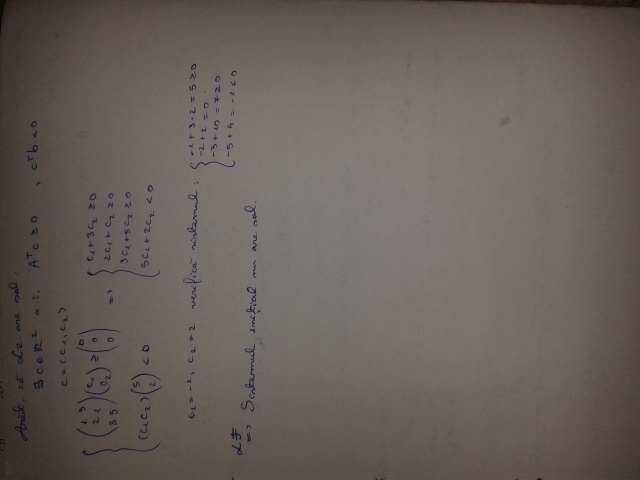 Arăt. că L2 are sol:
∃ c∈ℝ² a.î. Aᵀc ≥ 0 , cᵀb < 0
c = (c₁, c₂)
{ (1 3 / 2 1 / 3 5) (c₁ / c₂) ≥ (0 / 0 / 0) => { c₁+3c₂ ≥ 0
2c₁+c₂ ≥ 0
3c₁+5c₂ ≥ 0
(c₁ c₂) (5 / 2) < 0 5c₁+2c₂ < 0
c₁ = -1, c₂ = 2 verifică sistemul: { -1+3·2 = 5 ≥ 0
-2+2 = 0
-3+10 = 7 ≥ 0
-5+4 = -1 < 0
LF
=> Sistemul inițial nu are sol.